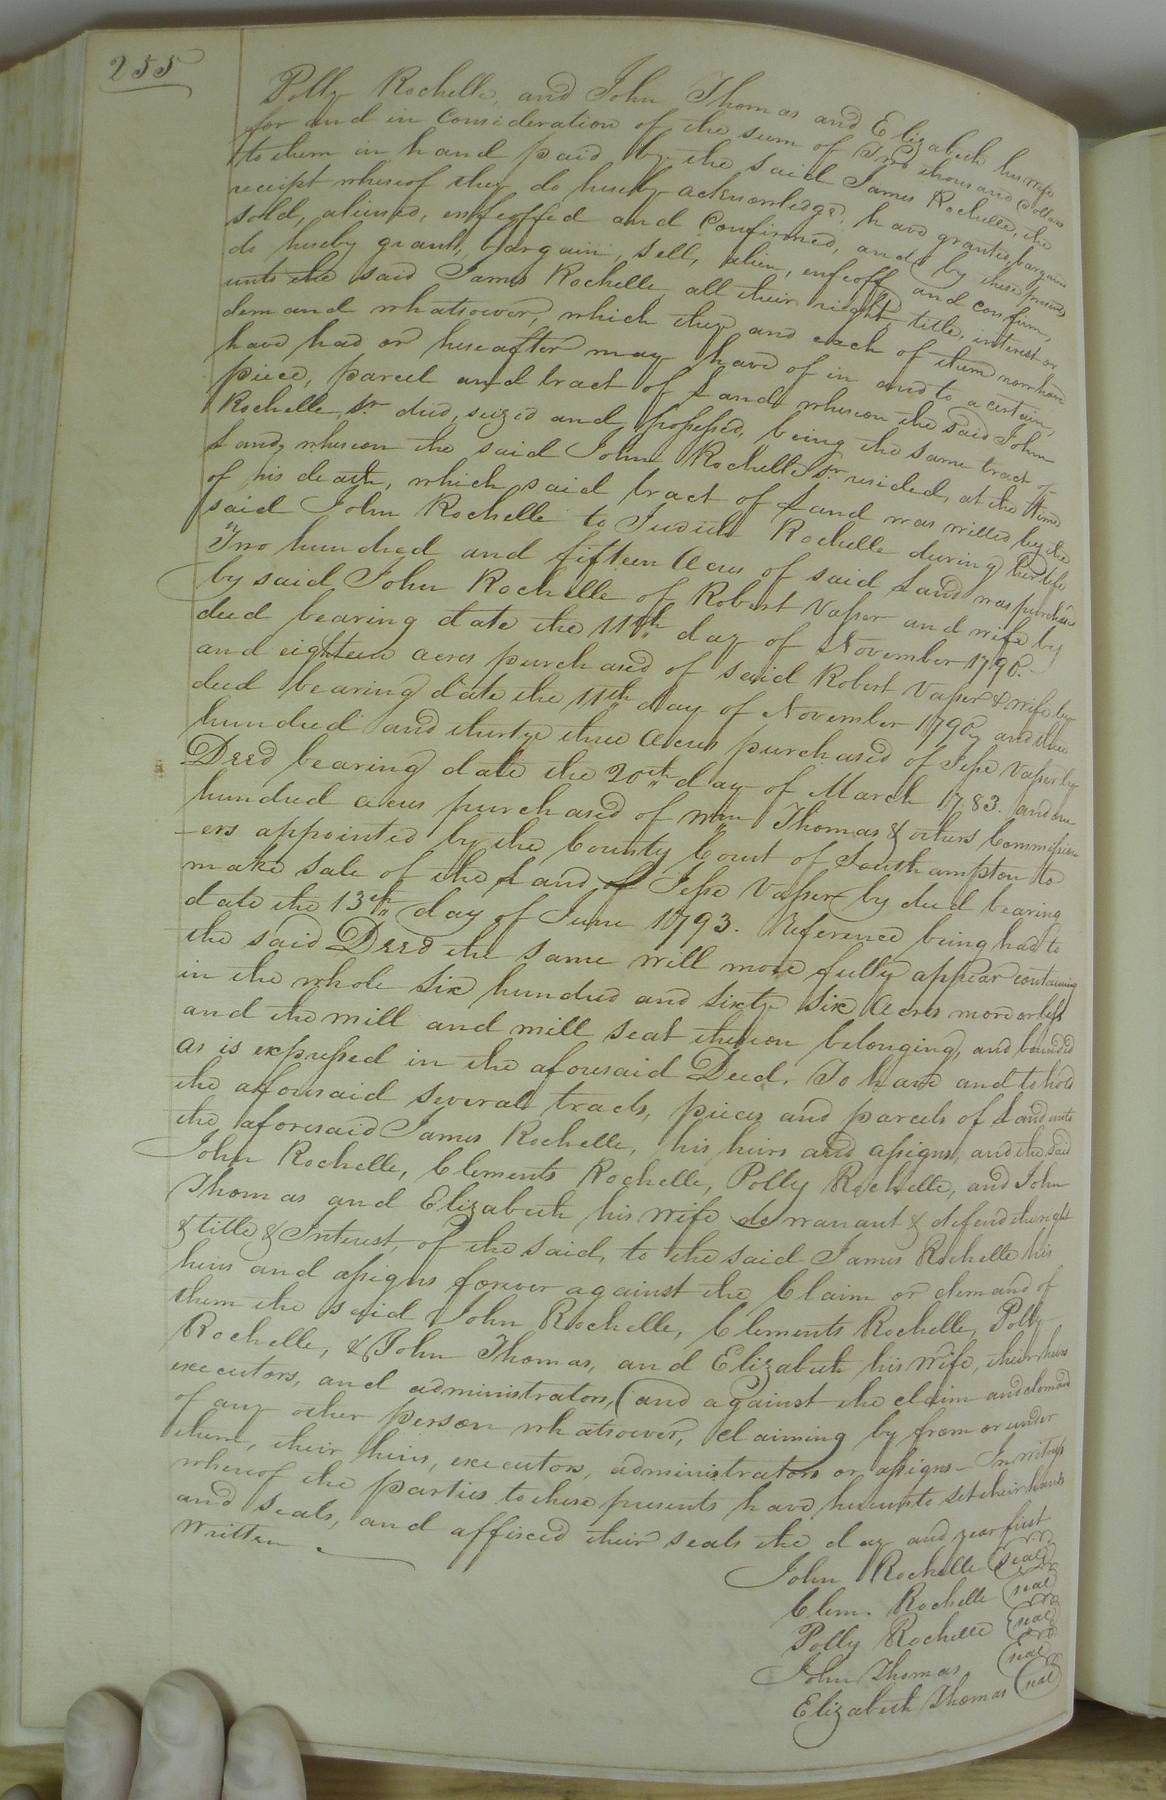 255
Polly Rochelle, and John Thomas and Elizabeth his wife
for and in Consideration of the sum of Two thousand dollars
to them in hand paid by the said James Rochelle, the
receipt whereof they do hereby acknowledge, have granted, bargained
sold, aliened, enfeoffed and Confirmed, and by these presents
do hereby grant, bargain, sell, alien, enfeoff and confirm,
unto the said James Rochelle all their right, title, interest or
demand whatsoever, which they and each of them now have
have had or hereafter may have of in and to a certain,
piece, parcel and tract of Land whereon the said John
Rochelle, Sr died, seized and possessed, being the same tract of
Land, whereon the said John Rochelle Sr resided, at the time
of his death, which said tract of Land was willed by the
said John Rochelle to Judith Rochelle during her life
Two hundred and fifteen Acres of said Land was purchased
by said John Rochelle of Robert Vasser and wife by
deed bearing date the 11th day of November 1790.
and eighteen acres purchased of said Robert Vasser & wife by
deed bearing date the 11th day of November 1790, and three
hundred and thirty three Acres purchased of Jesse Vasser by
Deed bearing date the 20th day of March 1783. and one
hundred acres purchased of Wm Thomas & others Commission
-ers appointed by the County Court of Southampton to
make sale of the Land of Jesse Vasser by deed bearing
date the 13th day of June 1793. Reference being had to
the said Deed the same will more fully appear containing
in the whole Six hundred and sixty six Acres more or less
and the mill and mill seat thereon belonging, and bounded
as is expressed in the aforesaid Deed. To have and to hold
the aforesaid several tracts, pieces and parcels of Land unto
the aforesaid James Rochelle, his heirs and assigns, and the said
John Rochelle, Clements Rochelle, Polly Rochelle, and John
Thomas and Elizabeth his wife do warrant & defend the right
& title & Interest, of the said, to the said James Rochelle his
heirs and assigns forever against the Claim or demand of
them the said John Rochelle, Clements Rochelle, Polly
Rochelle, & John Thomas, and Elizabeth his wife, their heirs
executors, and administrators, (and against the claim and demand
of any other person whatsoever, claiming by from or under
them, their heirs, executors, administrators or assigns - In witness
whereof the parties to these presents have hereunto set their hands
and seals, and affixed their seals the day and year first
written
John Rochelle (seal)
Clem. Rochelle (seal)
Polly Rochelle (seal)
John Thomas (seal)
Elizabeth Thomas (seal)